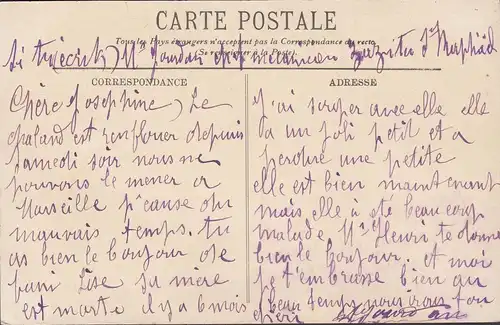 CARTE POSTALE
Tous les Pays étrangers n'acceptent pas la Correspondance au recto
(Se renseigner à la Poste).
Si tu écrits Mr Jourdan chef mécanicien St Raphaël
CORRESPONDANCE
Chère Josephine) Le
chaland est renflouer depuis
samedi soir nous ne
pouvons le mener a
Marseille p'cause du
mauvais temps. tu
as bien le bonjour de
Lise sa mère
est morte il y a 6 mois
ADRESSE
J'ai souper avec elle elle
a un joli petit et a
perdue une petite
elle est bien maintenant
mais elle à été beaucoup
malade Mr Henri te donne
bien le bonjour. et moi
je t'embrasse bien au
beau temps nous irons
Jourdan